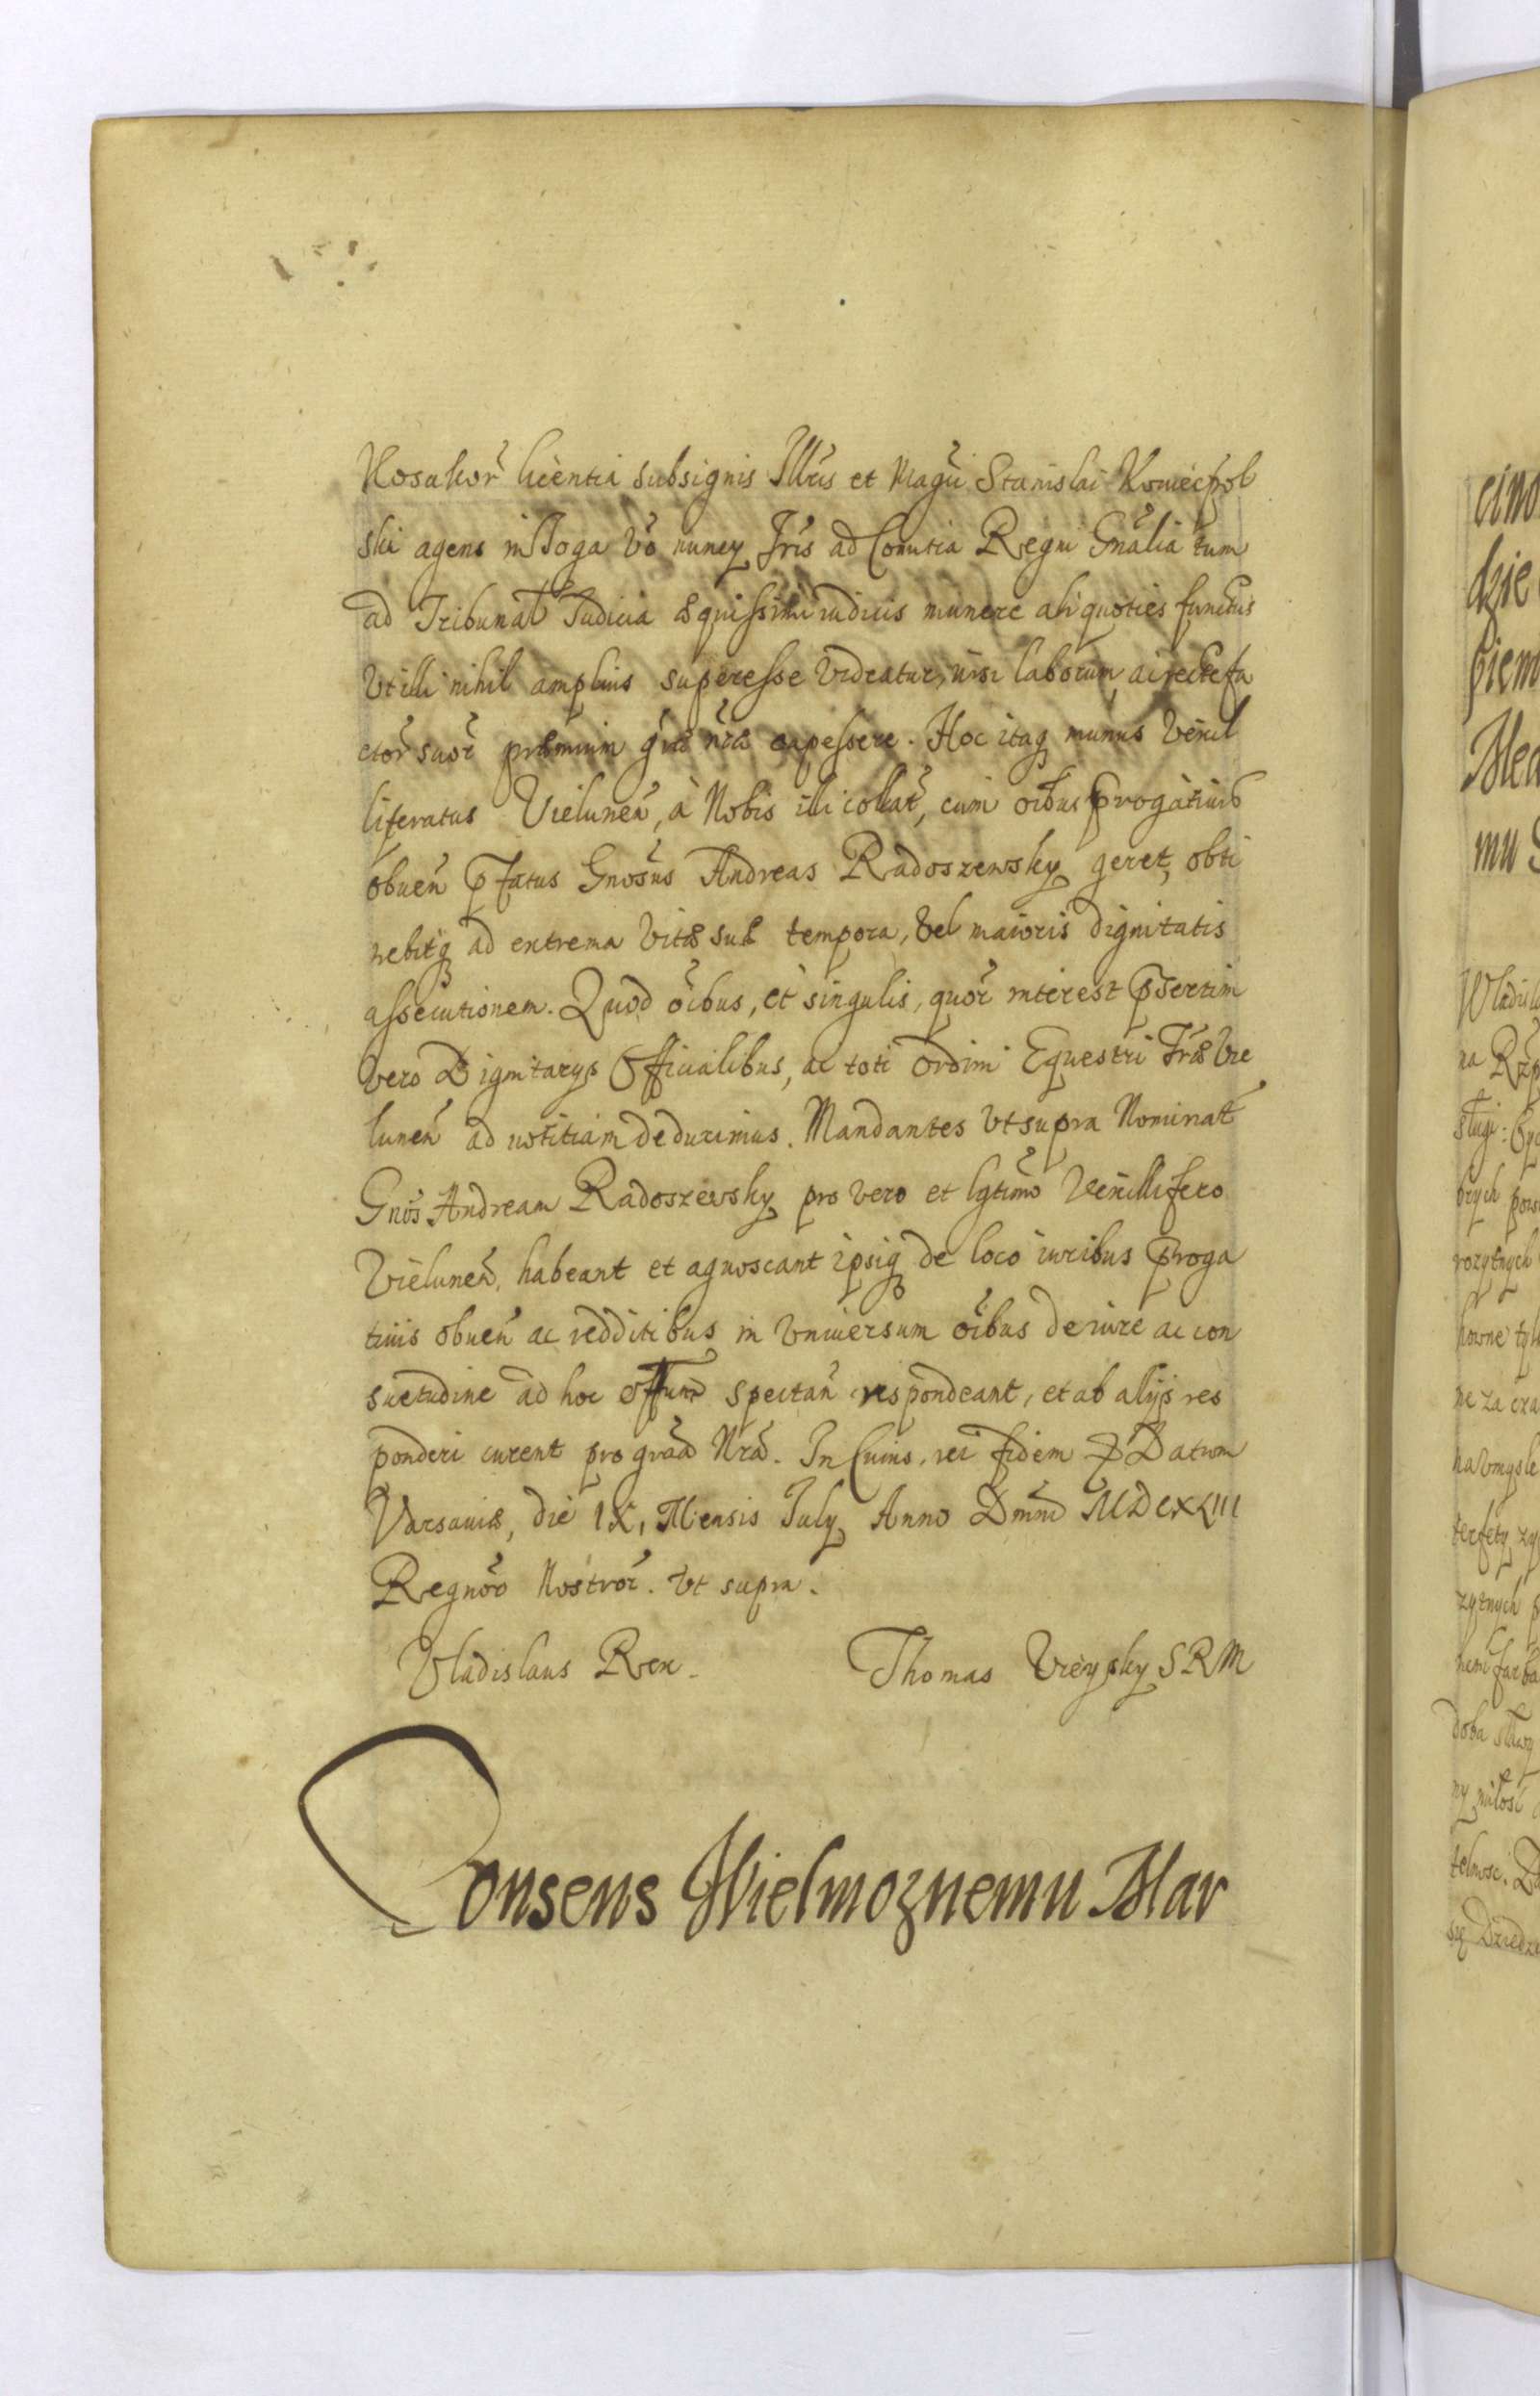 Kosakor̃ licentia subsignis Illr̃is et Magñi Stanislai Koniecpol
ski agens in Toga võ nuncy Tr̃is ad Comitia Regni Gnãlia tum
ad Tribunal Iudicia æquissimi iudicis munere aliquoties functus
Vt illi nihil amplius superesse Videatur, nisi laborum, ac recte fa
ctor̃ suor̃ præmium gr̃æ nr̃æ capessere. Hoc itaq munus Vexil
liferatus Vielunen̄, à Nobis illi collat̃, cum oĩbus prrogatiuis
obuen̄ pfatus Gnosus Andreas Radoszewsky geret, obti
nebitq ad extrema Vitæ suæ tempora, Vel maioris dignitatis
assecutionem. Quod oĩbus, et singulis, quor̃ interest psertim
vero Dignitarys Officialibus, ac toti Ordini Equestri Tr̃æ Vie
lunen̄ ad notitiam deducimus. Mandantes Vt supra Nominat̃
Gnõs Andream Radoszewsky pro vero et lgtimo Vexillifero
Vielunen̄, habeant et agnoscant ipsiq de loco iuribus prroga
tiuis obuen̄ ac redditibus in Vniuersum oĩbus de iure ac con
suetudine ad hoc offum spectan̄ respondeant, et ab alijs res
ponderi curent pro grãa Nrã. In Cuius rei fidem Datum
Varsauiæ, die IX, Mensis July Anno Dmni MDCXLIII
Regnor̃ Nostror̃. Vt supra.
Vladislaus Rex. Thomas Vieysky SRM
Consens Wielmoznemu Mar